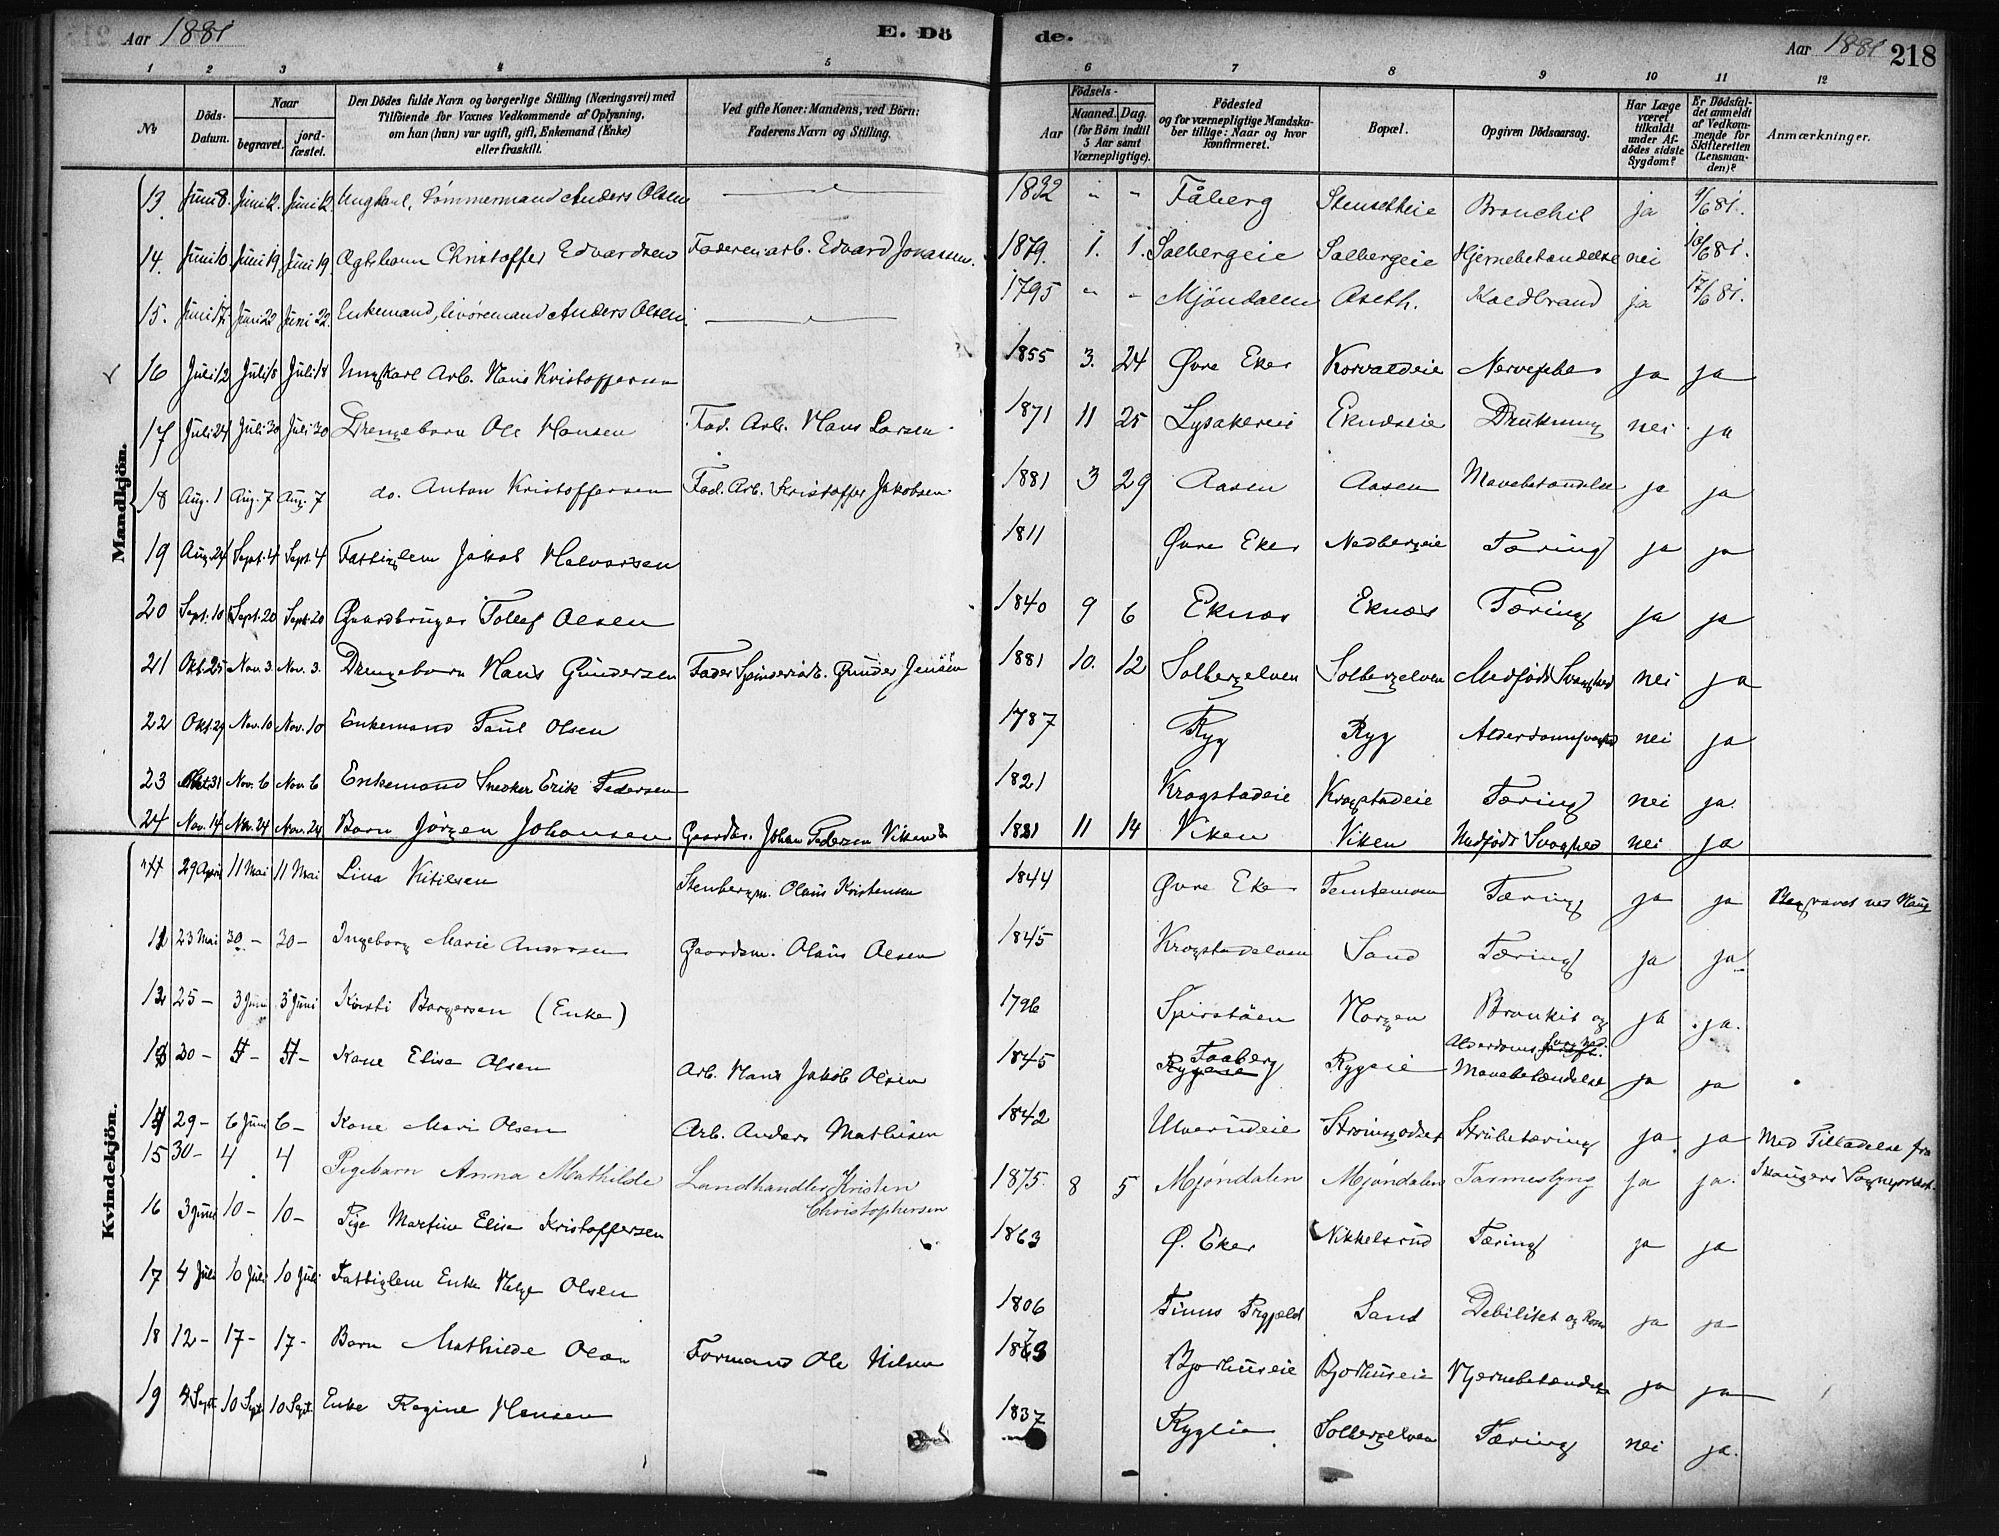 Aar 1881 E. Dö de. Aar 1881 218
1 2 3 4 5 6 7 8 9 10 11 12
No
Döds-Datum.
Naar
begravet. jordfæstet.
Den Dödes fulde Navn og borgerlige Stilling (Næringsvei) med
Tilföiende for Voxnes Vedkommende af Oplysning,
om han (hun) var ugift, gift, Enkemand (Enke)
eller fraskilt.
Ved gifte Koner: Mandens, ved Börn:
Faderens Navn og Stilling.
Födsels-
Aar Maaned. Dag.
(for Börn indtil
5 Aar samt
Værnepligtige).
Födested
og for værnepligtige Mandskaber tillige: Naar og hvor
konfirmeret.
Bopæl.
Opgiven Dödsaarsag.
Har Læge
været
tilkaldt
under Afdödes sidste
Sygdom?
Er Dödsfaldet anmeldt
af Vedkommende for
Skifteretten
(Lensmanden)?
Anmærkninger.
Mandkjön.
13. Juni 8. Juni 12. Juni 12. Ungkarl, Tömmermand Anders Olsen 1832 " - Fåberg Stensetheie Bronchit ja 9/6 81.
14. Juni 10. Juni 19. Juni 19. Christoffer Edvardsen Faderen: arb. Edvard Jonassen. 1879. 1. 1. Solbergeie Solbergeie Hjernebetændelse nei 10/6 81.
15. Juni 17. Juni 22 Juni 22. Enkemand, Anders Olsen. 1795 " - Mjöndalen Aseth. Koldbrand ja 17/6 81.
16 Juli 12 Juli 18 Juli 18 Ungkarl Arb. Hans Kristoffersen 1855 3. 24 Øvre Eker Korvaldeie Nervefeber ja ja
17 Juli 24 Juli 30 Juli 30 Drengebarn Ole Hansen Fad. Arb. Hans Larsen. 1871 11 25 Lysakereie Eknæseie Drukning nei ja
18 Aug. 1 Aug. 7 Aug. 7 do. Anton Kristoffersen Fad. Arb. Kristoffer Jakobsen 1881 3 29 Aasen Aasen Mavebetændelse ja ja
19 Aug. 24 Sept. 4 Sept. 4 Fattiglem Jakob Halvorsen 1811 Øvre Eker Nedbergeie Tæring ja ja
20 Sept. 10 Sept. 20 Sept. 20 Gaardbruger Tollef Olsen 1840 9 6 Eknæs Eknæs Tæring ja ja
21 Okt. 25 Nov. 3 Nov. 3. Drengebarn Hans Gundersen Fader Spinderiarb. Gunder Jensen 1881 10. 12 Solbergelven Solbergelven Medfödt Svaghed nei ja
22 Okt. 29 Nov. 10 Nov. 10 Enkemand Paul Olsen 1787 Ryg Ryg Alderdomssvaghed nei ja
23 Okt. 31 Nov. 6 Nov. 6 Enkemand Snedker Erik Pedersen 1821 Krogstadeie Krogstadeie Tæring nei ja.
24 Nov. 14 Nov. 24 Nov. 24 Barn Jörgen Johansen Gaardbr. Johan Pedersen Viken 1881 11 14 Viken Viken Medfödt Svaghed nei ja
Kvindekjön.
29 April 11 Mai 11 Mai Lina Kitilsen Olaus Kristensen 1844 Øvre Eker Tæring ja ja Begravet ved Haug
23 Mai 30 - 30 - Ingeborg Marie Andersen Gaardm. Olaus Olsen 1845 Krogstadelven Sand Tæring ja ja
12 25 - 3 Juni 3 Juni Kirsti Borgersen (Enke) 1796 Spirstöen Horgen Bronkit og ja ja.
Alderdoms svaghed.
13 30 - 5 - 5 - Kone Elise Olsen Arb. Hans Jakob Olsen 1845 Faaberg Rygeie Rygeie Mavebetændelse ja ja
14 29 - 6 Juni 6 - Kone Mari Olsen Arb. Anders Mathisen 1842 Ulverudeie Strömsodset Strubetæring ja ja Med Tilladelse fra
15 30 - 4 4 Pigebarn Anna Mathilde Landhandler Kristen Christophersen 1875 8 5 Mjöndalen Mjöndalen Tarmeslyng ja ja. Skougers Sogneprest.
16 3 Juni 10 - 10 - Pige Martine Elise Kristoffersen 1863 Ø. Eker Mikkelsrud Tæring ja ja
17 4 Juli 10 Juli 10 Juli Fattiglem Enke Helge Olsen 1806 Sand Debilitet og ja ja
18 12 - 17 - 17 - Barn Mathilde Olsen Formand Ole Nilsen 1873 Bjorhuseie Bjorhuseie Hjernebetændelse ja ja
19 4 Sept 10 Sept 10 Sept. Enke Regine Hansen 1837 Rygeie Solbergelven Tæring nei ja.